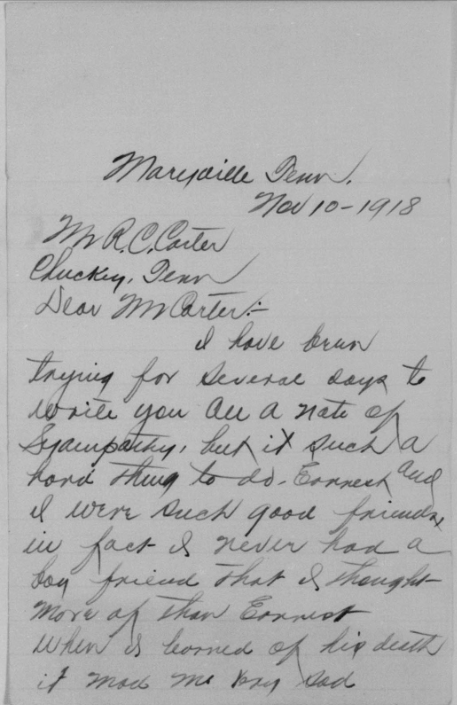 Maryville Tenn.
Nov 10-1918
Mr R.C. Carter
Chuckey, Tenn
Dear Mr Carter:-
I have been
trying for several days to
write you all a note of
Sympathy, but it such a
hard thing to do. Earnest and
I were such good friends,
in fact I never had a
boy friend that I thought
more of than Earnest
When I learned of his death
it mad me very sad